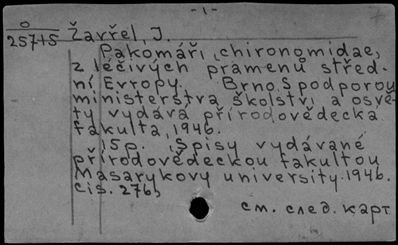 - 1 -
0
25715 Žavřel, J.
Pakomáři, chironomidae,
z léčivých pramenů střed-
ní Evropy. Brno, S podporou
ministerstva školství a osvě-
ty vydává přírodovědecká
fakulta, 1946.
15 p. (Spisy vydávané
přírodovědeckou fakultou
Masarykovy university. 1946.
čis. 276)
см. след. карт